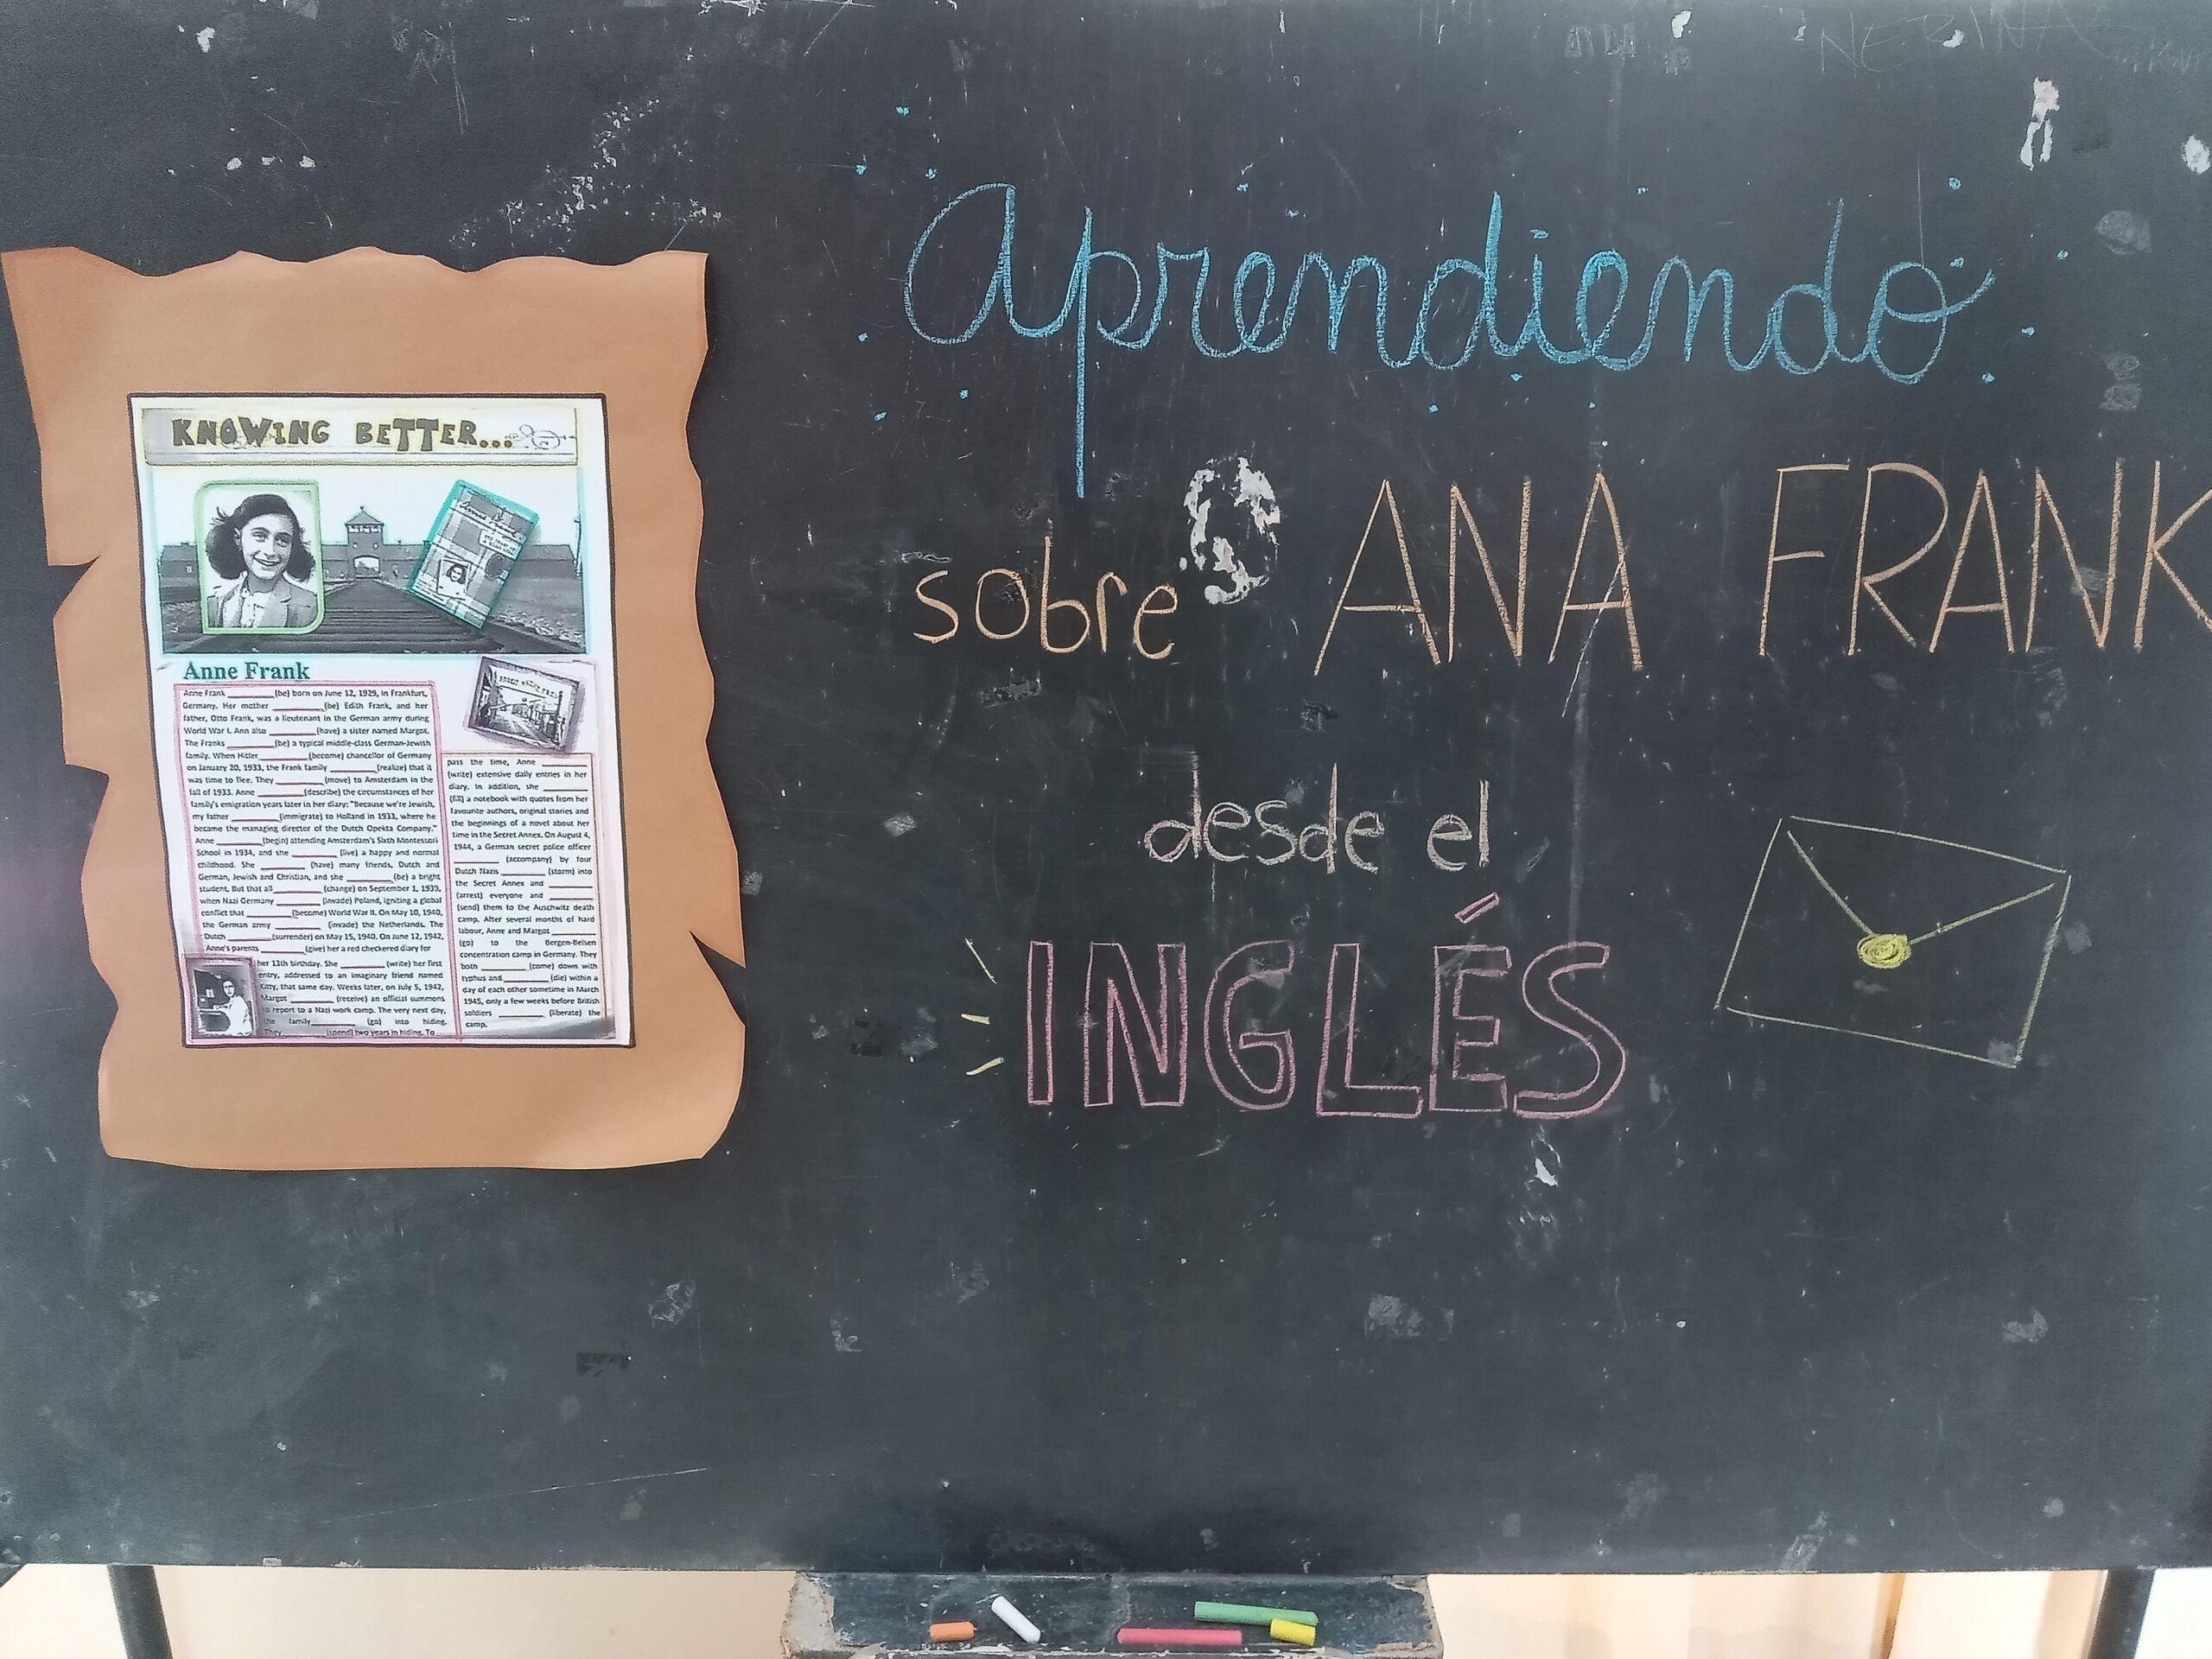 KNOWING BETTER...
Anne Frank
Anne Frank ________(be) born on June 12, 1929, in Frankfurt,
Germany. Her mother ________(be) Edith Frank, and her
father, Otto Frank, was a lieutenant in the German army during
World War I. Ann also ________(have) a sister named Margot.
The Franks ________(be) a typical middle-class German-Jewish
family. When Hitler ________(become) chancellor of Germany
on January 20, 1933, the Frank family ________(realize) that it
was time to flee. They ________(move) to Amsterdam in the
fall of 1933. Anne ________(describe) the circumstances of her
family's emigration years later in her diary: "Because we're Jewish,
my father ________(immigrate) to Holland in 1933, where he
became the managing director of the Dutch Opekta Company."
Anne ________(begin) attending Amsterdam's Sixth Montessori
School in 1934, and she ________ (live) a happy and normal
childhood. She ________ (have) many friends, Dutch and
German, Jewish and Christian, and she ________(be) a bright
student. But that all ________ (change) on September 1, 1939,
when Nazi Germany ________ (invade) Poland, igniting a global
conflict that ________(become) World War II. On May 10, 1940,
the German army ________ (invade) the Netherlands. The
Dutch ________(surrender) on May 15, 1940. On June 12, 1942,
Anne's parents ________(give) her a red checkered diary for
her 13th birthday. She ________(write) her first
entry, addressed to an imaginary friend named
Kitty, that same day. Weeks later, on July 5, 1942,
Margot ________ (receive) an official summons
to report to a Nazi work camp. The very next day,
the family ________ (go) into hiding.
They ________(spend) two years in hiding. To
pass the time, Anne ________
(write) extensive daily entries in her
diary. In addition, she ________
(fill) a notebook with quotes from her
favourite authors, original stories and
the beginnings of a novel about her
time in the Secret Annex. On August 4,
1944, a German secret police officer
________ (accompany) by four
Dutch Nazis ________ (storm) into
the Secret Annex and ________
(arrest) everyone and ________
(send) them to the Auschwitz death
camp. After several months of hard
labour, Anne and Margot ________
(go) to the Bergen-Belsen
concentration camp in Germany. They
both ________ (come) down with
typhus and ________ (die) within a
day of each other sometime in March
1945, only a few weeks before British
soldiers ________ (liberate) the
camp.
Aprendiendo
sobre ANA FRANK
desde el
INGLÉS